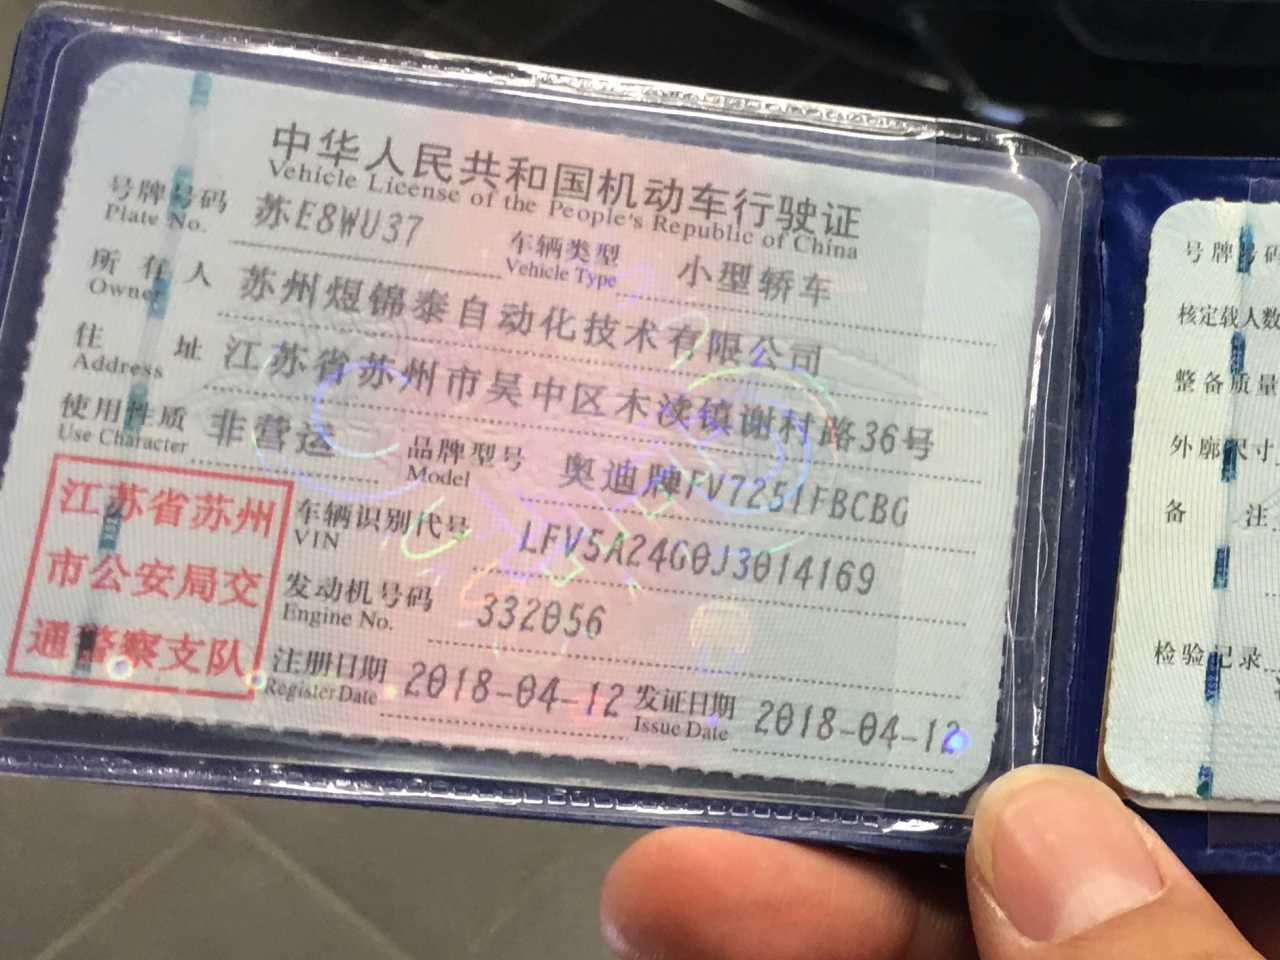 中华人民共和国机动车行驶证
Vehicle License of the People's Republic of China
号牌号码 苏E8WU37 车辆类型 小型轿车
Plate No. Vehicle Type
所有人 苏州煜锦泰自动化技术有限公司
Owner
住址 江苏省苏州市吴中区木渎镇谢村路36号
Address
使用性质 非营运 品牌型号 奥迪牌FV7251FBCBG
Use Character Model
江苏省苏州
市公安局交
通警察支队
车辆识别代号 LFV5A24G0J3014169
VIN
发动机号码 332056
Engine No.
注册日期 2018-04-12 发证日期 2018-04-12
Register Date Issue Date
号牌号码
核定载人数
整备质量
外廓尺寸
备注
检验记录